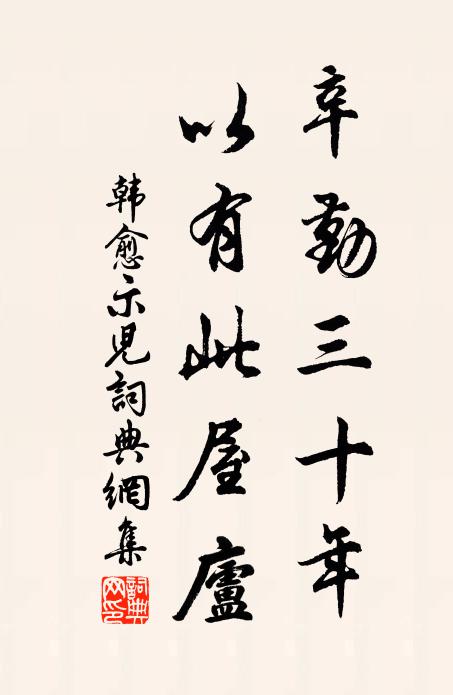 辛勤三十年
以有此屋廬
韓愈示児詞典網集
詞典網印